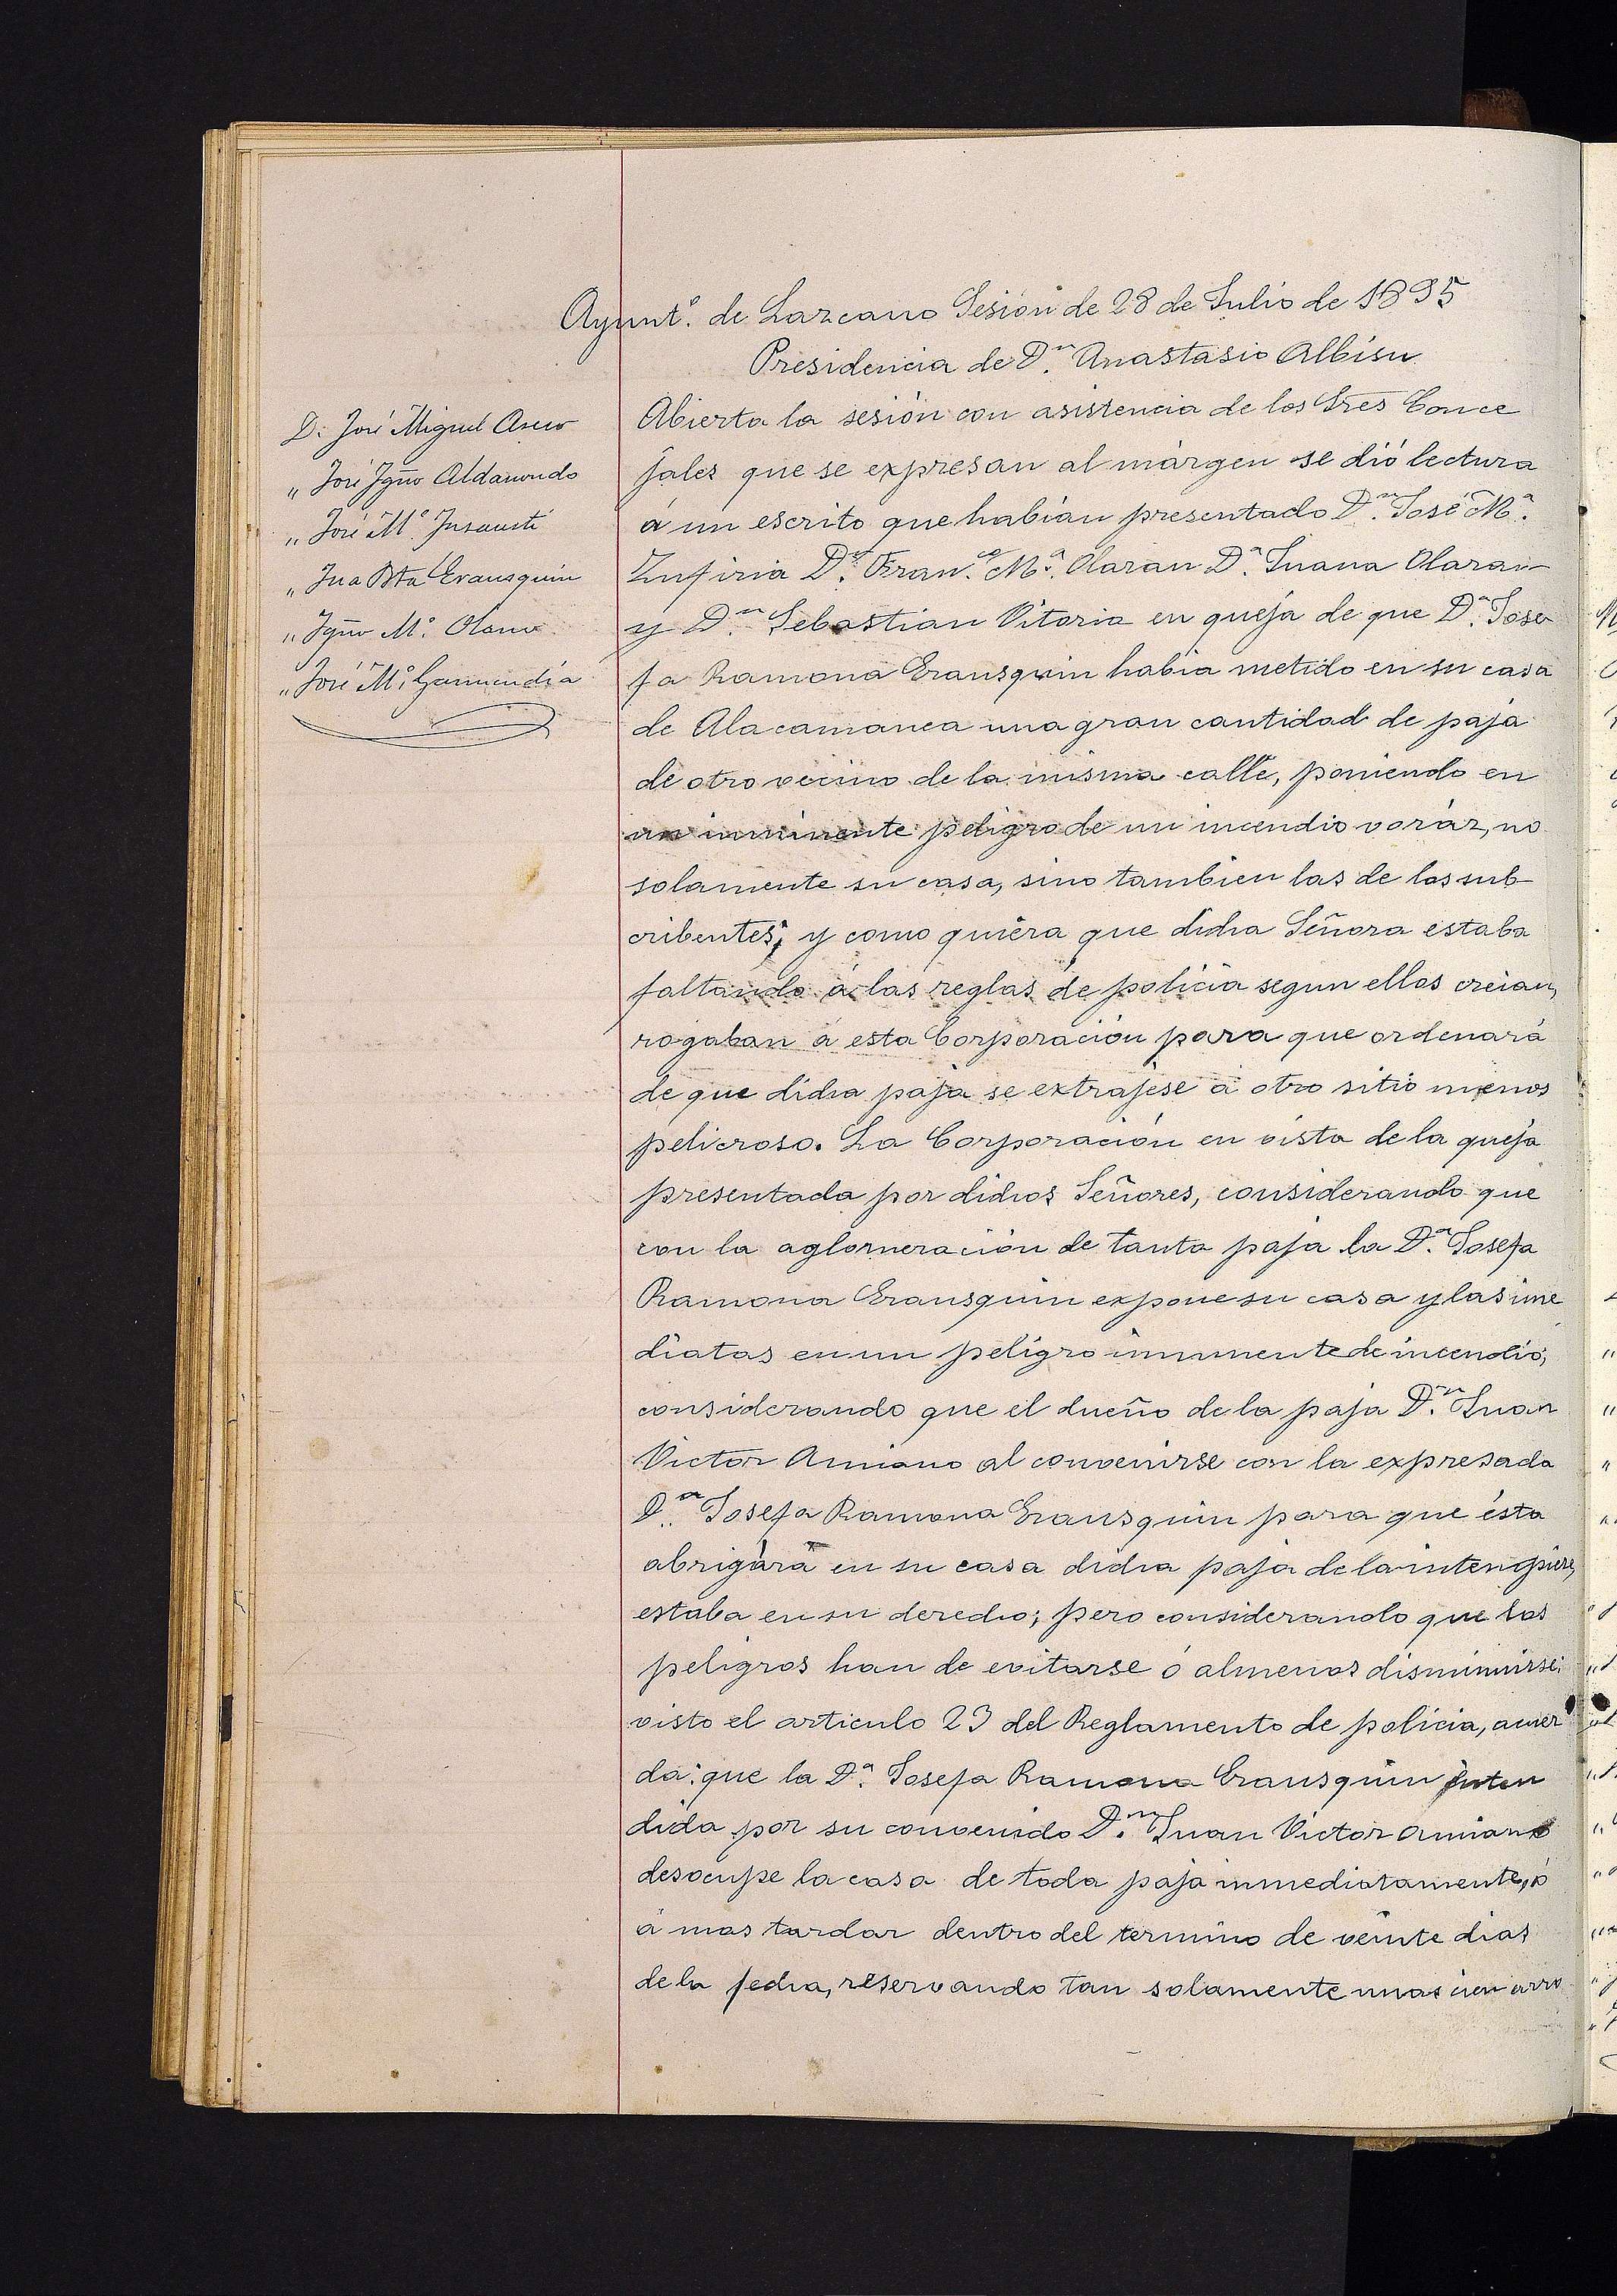 Ayunt.º de Lazcano Sesión de 28 de Julio de 1895
Presidencia de D.n Anastasio Albisu
D. José Miguel Aseso
„ José Ygño Aldasondo
„ José M.ª Insausti
„ Jua Bta Erausquin
„ Ygño M.ª Olano
„ José M.ª Garmendia
Abierta la sesión con asistencia de los Sres Conce
jales que se expresan al márgen se dió lectura
á un escrito que habían presentado D.n José M.ª
Zufiria D.n Fran.co M.ª Olaran D.ª Juana Olaran
y D.n Sebastian Vitoria en queja de que D.ª Jose
fa Ramona Erausquin había metido en su casa
de Alacamanea una gran cantidad de paja
de otro vecino de la misma calle, poniendo en
un inminente peligro de un incendio voráz, no
solamente su casa, sino tambien las de los sub
cribentes; y como quiera que dicha Señora estaba
faltando á las reglas de policia segun ellos creian,
rogaban á esta Corporación para que ordenará
de que dicha paja se extrajese á otro sitio menos
pelicroso. La Corporación en vista de la queja
presentada por dichos Señores, considerando que
con la aglomeración de tanta paja la D.ª Josefa
Ramona Erausquin expone su casa y las ime
diatas en un peligro inminente de incendio;
considerando que el dueño de la paja D.n Juan
Victor Amiano al convenirse con la expresada
D.ª Josefa Ramona Erausquin para que ésta
abrigára en su casa dicha paja de la
estaba en su derecho; pero considerando que los
peligros han de evitarse ó almenos disminuirse:
visto el articulo 23 del Reglamento de policia, acuer
da: que la D.ª Josefa Ramona Erausquin
dida por su convenido D.n Juan Victor Amiano
desocupe la casa de toda paja inmediatamente, ó
á mas tardar dentro del termino de veinte dias
de la fecha, reservando tan solamente unas cien arro